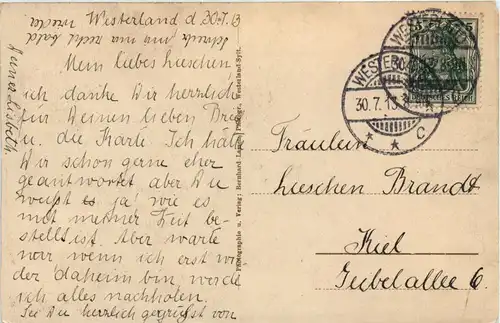 Westerland d. 30.7.13
Mein liebes Lieschen!
ich danke Dir herzlich
für Deinen lieben Brief
u. die Karte. Ich hätte
Dir schon gerne eher
geantwortet aber Du
weißt es ja wie es
mit meiner Zeit be-
stellt ist. Aber warte
nur wenn ich erst wie
der daheim bin, werde
ich alles nachholen.
Sei Du herzlich gegrüßt von
Deiner Lisbeth.
Schreib mir mal recht bald wieder
Photographie u. Verlag: Bernhard Westerland-Sylt.
WESTERLAND
30.7.13
* * C
WESTERLAND
Fräulein
Lieschen Brandt
Kiel
Jubelallee 6.